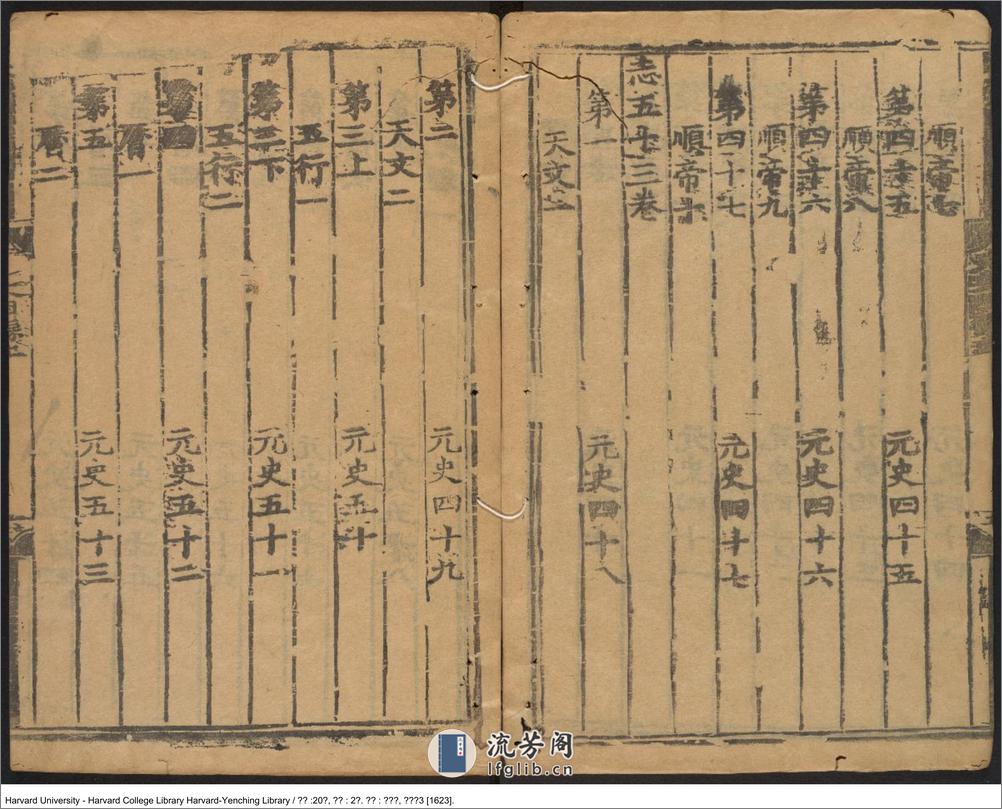 順帝七
第四十五 元史四十五
順帝八
第四十六 元史四十六
順帝九
第四十七 元史四十七
順帝十
志五十三卷
第一 元史四十八
天文一
第二 元史四十九
天文二
第三上 元史五十
五行一
第三下 元史五十一
五行二
第四 元史五十二
曆一
第五 元史五十三
曆二
流芳阁
lfglib.cn
Harvard University - Harvard College Library Harvard-Yenching Library / ?? :20?, ?? : 2?. ?? : ???, ???3 [1623].